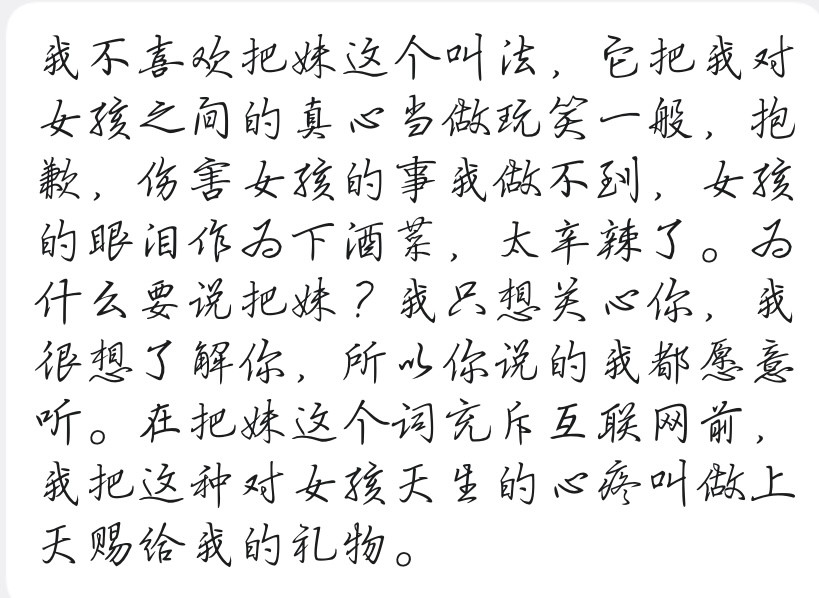 我不喜欢把妹这个叫法，它把我对
女孩之间的真心当做玩笑一般，抱
歉，伤害女孩的事我做不到，女孩
的眼泪作为下酒菜，太辛辣了。为
什么要说把妹？我只想关心你，我
很想了解你，所以你说的我都愿意
听。在把妹这个词充斥互联网前，
我把这种对女孩天生的心疼叫做上
天赐给我的礼物。